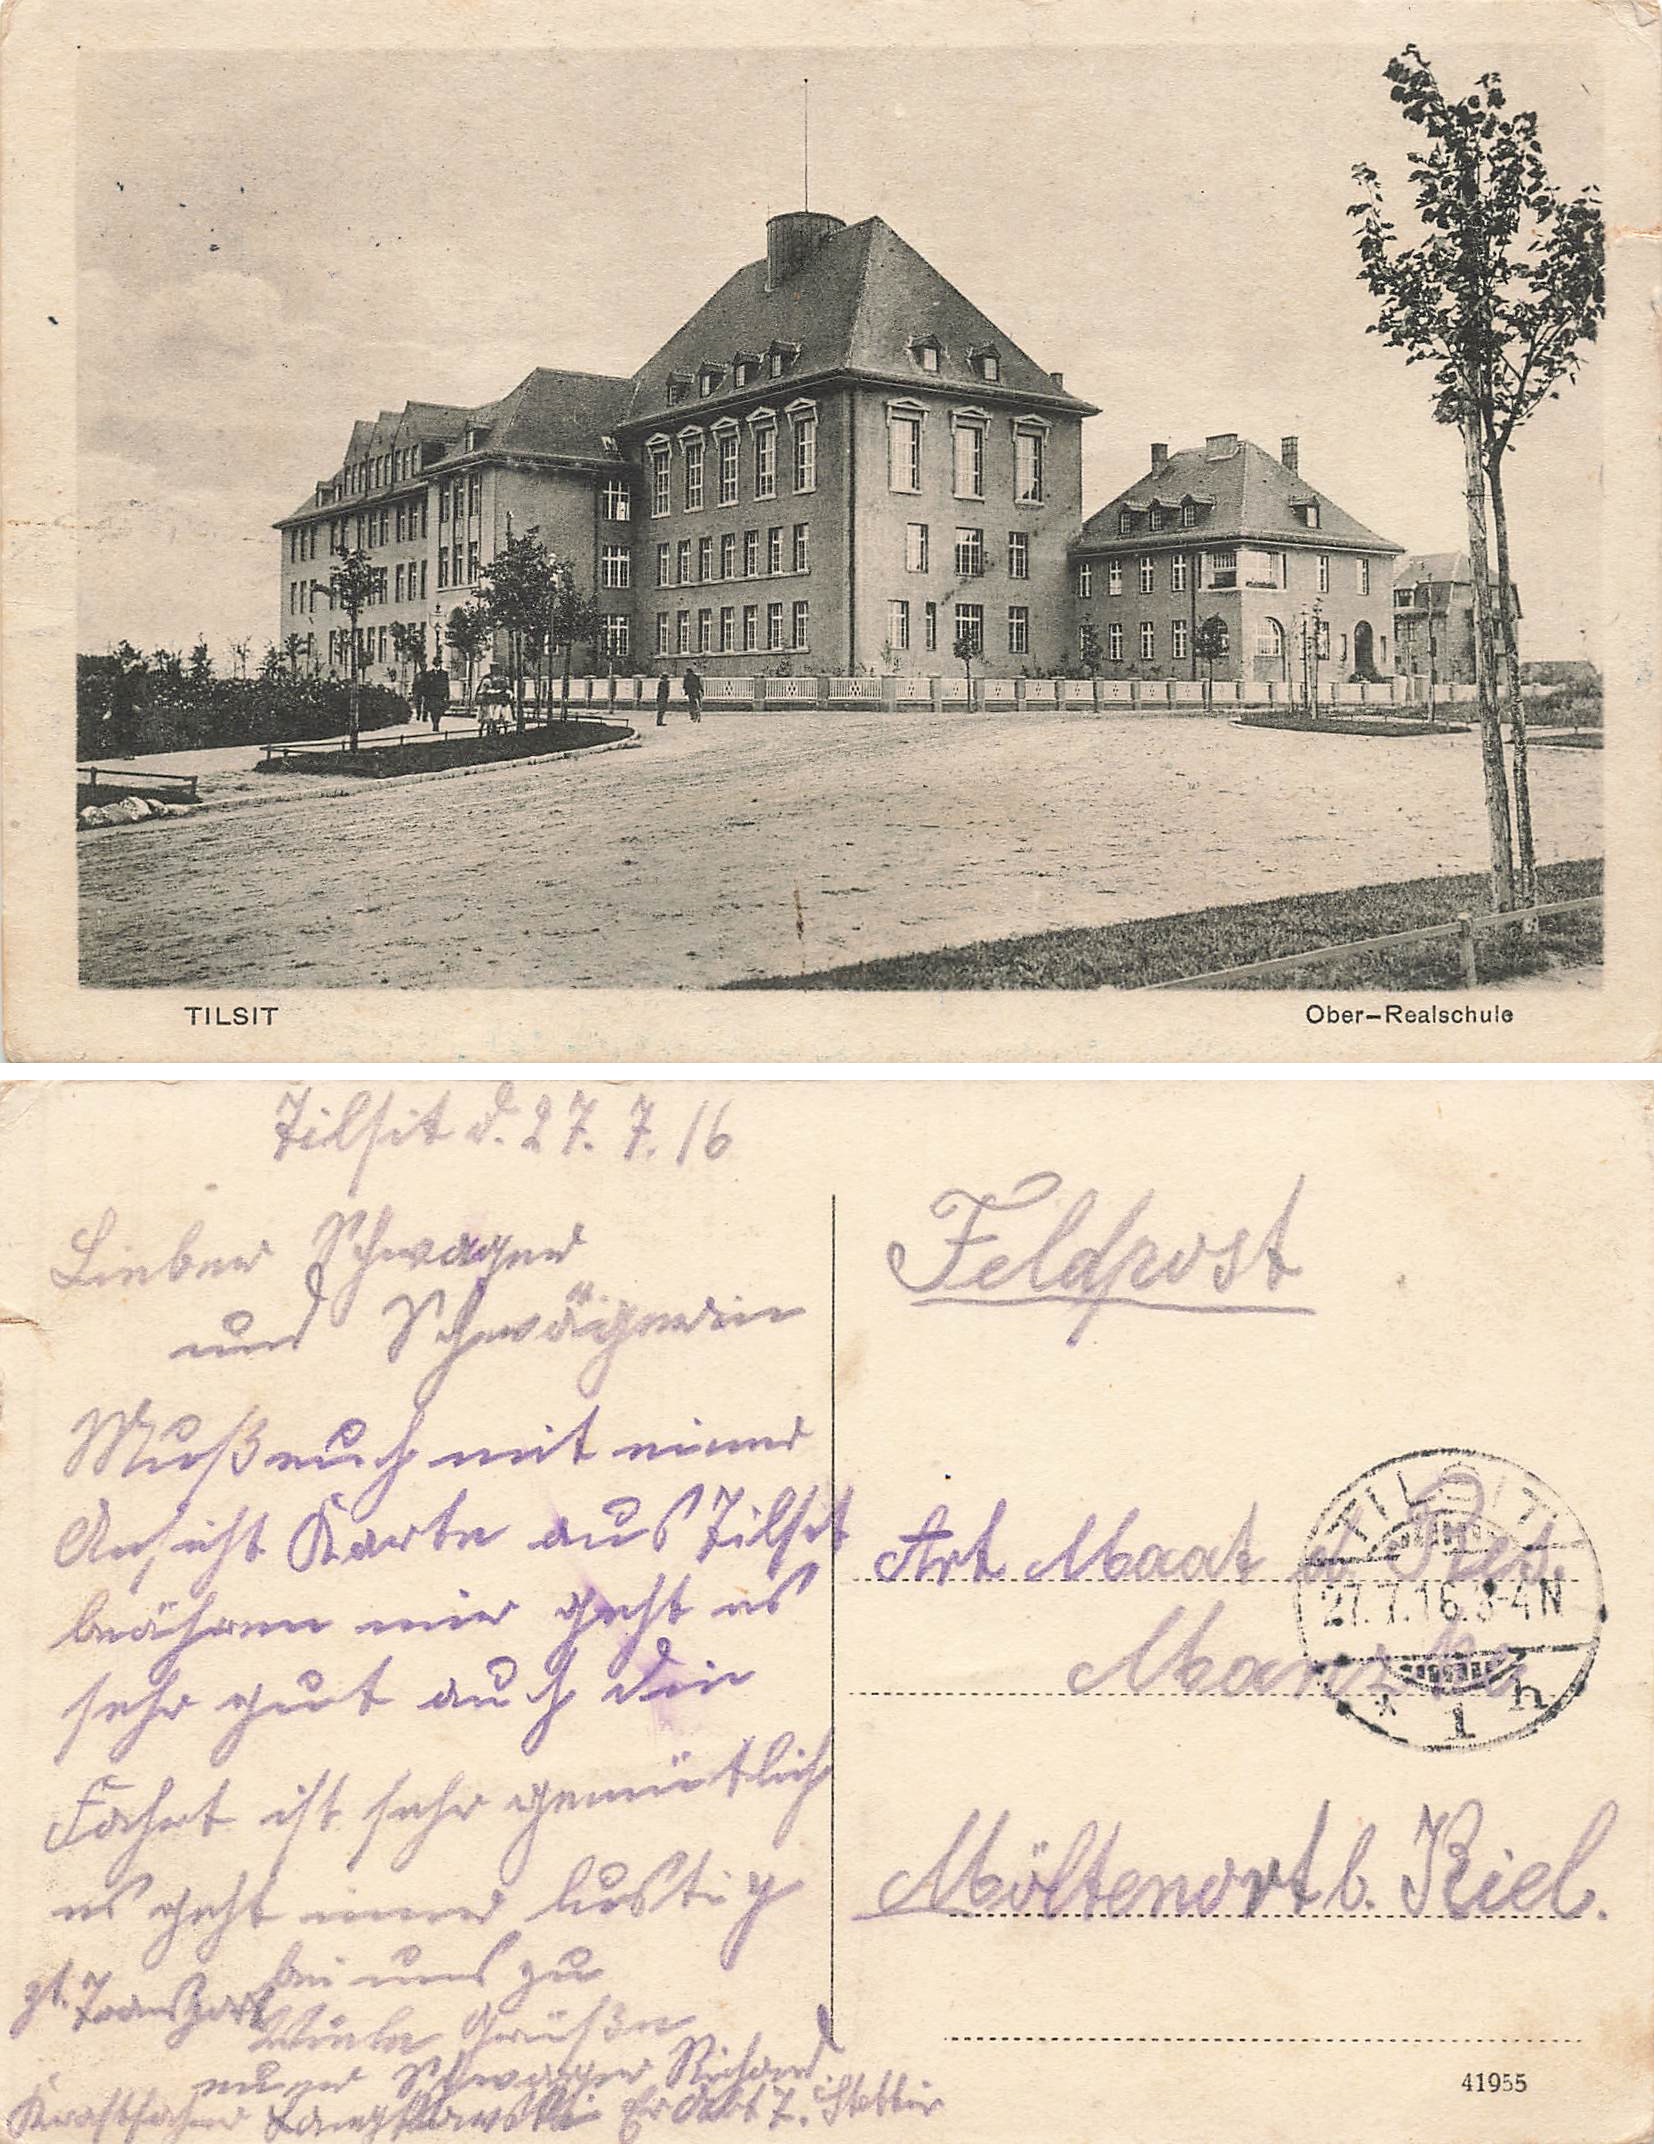 TILSIT
Ober-Realschule
Tilsit d. 27. 7. 16
Lieber Schwager
und Schwägerin
Muß euch mit einer
Ansicht Karte aus Tilsit
beähren mir geht es
sehr gut auch die
Fahrt ist sehr gemütlich
es geht immer lustig
bei uns zu
zt. Transport
Viele Grüße
euer Schwager Richard
Kraftfahrer Stettin
Feldpost
Art Maat d. Res.
Möltenort b. Kiel.
TILSIT
27.7.16.3-4N
* 1 h
41955